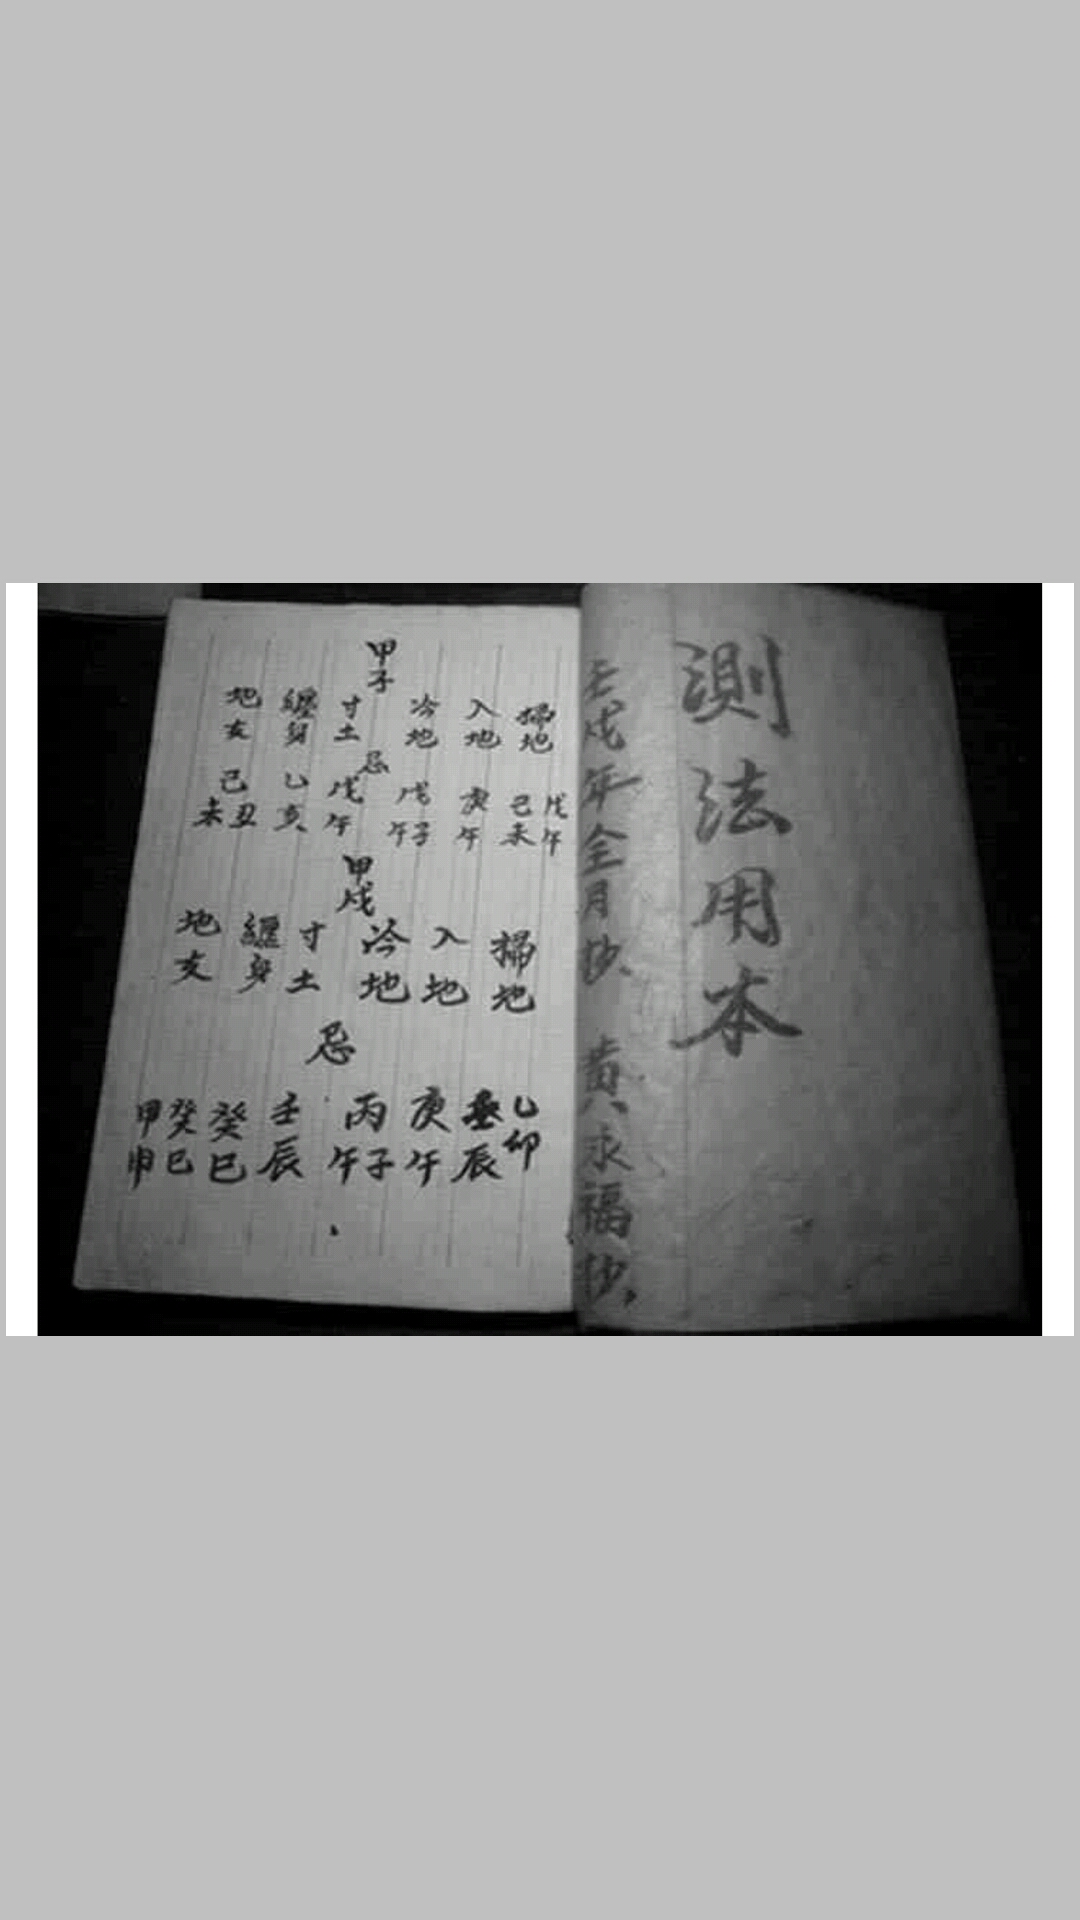 測法用本
壬戌年全月抄 黄永福抄
甲子
掃地
入地
冷地
寸土
纏身
地支
忌
戊午
己未
庚午
戊子午
戊午
乙亥
己丑未
甲戌
掃地
入地
冷地
寸土
纏身
地支
忌
乙卯
辰
庚午
丙子午
壬辰
癸巳
癸巳
甲申